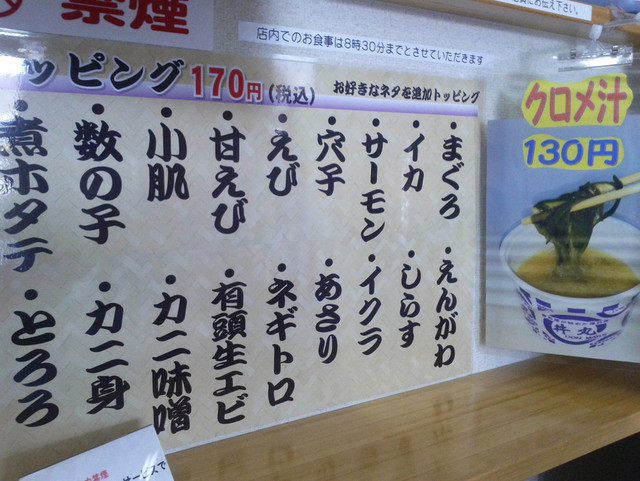 禁煙
にお伝え下さい。
店内でのお食事は8時30分までとさせていただきます
ッピング 170円(税込) お好きなネタを追加トッピング
・まぐろ
・えんがわ
・イカ
・しらす
・サーモン
・イクラ
・穴子
・あさり
・えび
・ネギトロ
・甘えび
・有頭生エビ
・小肌
・カニ味噌
・数の子
・カニ身
・煮ホタテ
・とろろ
クロメ汁
130円
丼丸
DON MARU
禁煙
サービスで